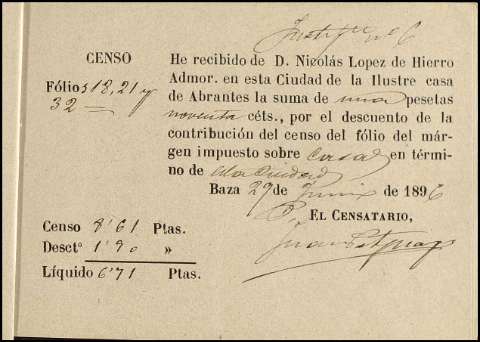 CENSO
Fólios 18, 21 y
32
He recibido de D. Nicolás Lopez de Hierro
Admor. en esta Ciudad de la Ilustre casa
de Abrantes la suma de una pesetas
noventa céts., por el descuento de la
contribución del censo del fólio del már-
gen impuesto sobre Casas en térmi-
no de esta Ciudad
Baza 29 de Junio de 1896
P.
EL CENSATARIO,
Juan
Censo 8'61 Ptas.
Desctº 1'90 »
Líquido 6'71 Ptas.